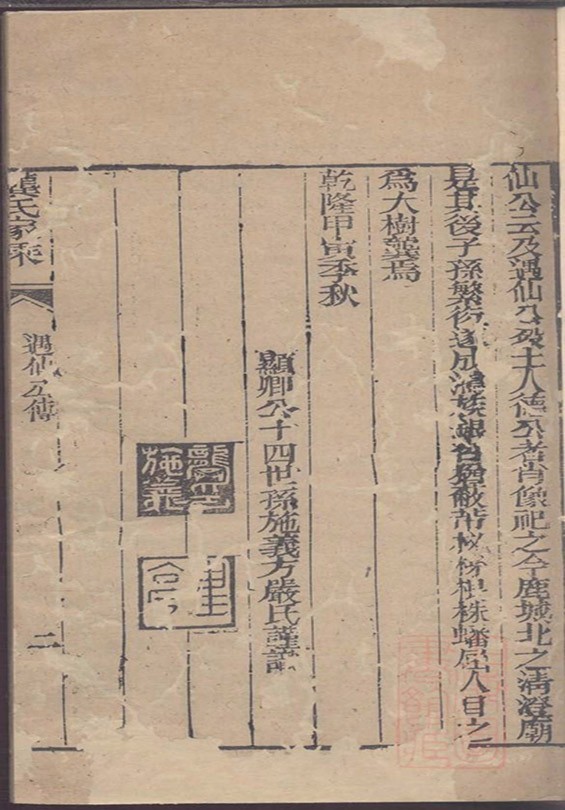 仙公云及遇仙公歿土人德公者肖像祀之今鹿城北之清澄廟
是其後子孫繁衍遂成 族 蟠屈人目之
爲大樹龔焉
乾隆甲寅季秋
顯卿公十四世孫施義方嚴氏謹
龔氏家乘
遇仙公傳
二
施義